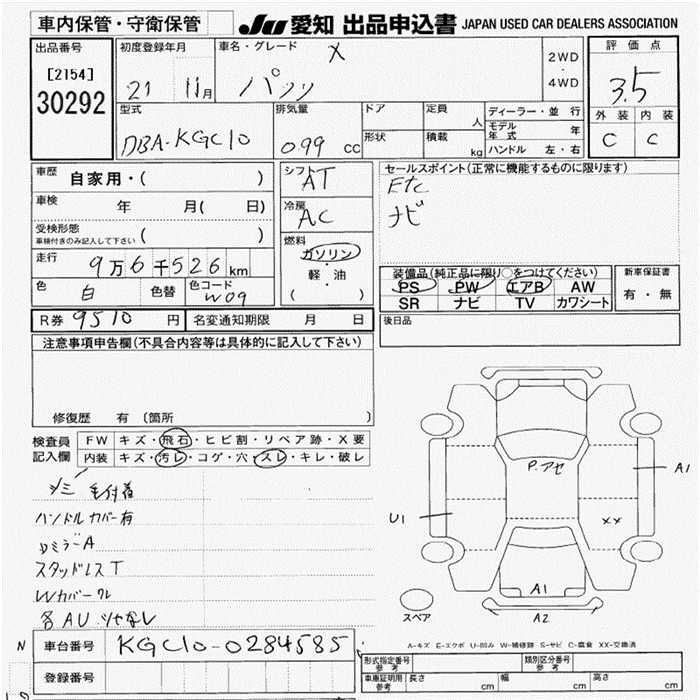 車内保管・守衛保管
JU 愛知 出品申込書 JAPAN USED CAR DEALERS ASSOCIATION
出品番号
[2154]
30292
初度登録年月
21 11月
車名・グレード
パッソ X
2WD
・
4WD
評価点
3.5
外装 内装
C C
型式
DBA-KGC10
排気量
099 cc
ドア
形状
定員 人
積載 kg
ディーラー・並行
モデル年式 年
ハンドル 左・右
車歴 自家用・( )
車検 年 月( 日)
受検形態
車検付きのみ記入して下さい ( )
走行 9万6千526km
色 白 色替 色コード W09
シフト AT
冷房 AC
燃料
ガソリン
・
軽・油
( )
セールスポイント(正常に機能するものに限ります)
Etc
ナビ
装備品(純正品に限り○をつけてください)
PS PW エアB AW
SR ナビ TV カワシート
新車保証書
有・無
R券 9510 円 名変通知期限 月 日
後日品
注意事項申告欄(不具合内容等は具体的に記入して下さい)
修復歴 有 〔箇所
検査員
記入欄
FW キズ・飛石・ヒビ割・リペア跡・X要
内装 キズ・汚レ・コゲ・穴・スレ・キレ・破レ
シミ 毛付着
ハンドルカバー有
ミラーA
スタッドレスT
Wカバーワレ
各AUツヤなし
P.アセ
A1
U1
XX
A1
A2
スペア
A-キズ E-エクボ U-凹み W-補修跡 S-サビ C-腐食 XX-交換済
N 車台番号 KGC10-0284585
登録番号
形式指定番号
参考
類別区分番号
参考
車庫証明用
参考
長さ cm 幅 cm 高さ cm